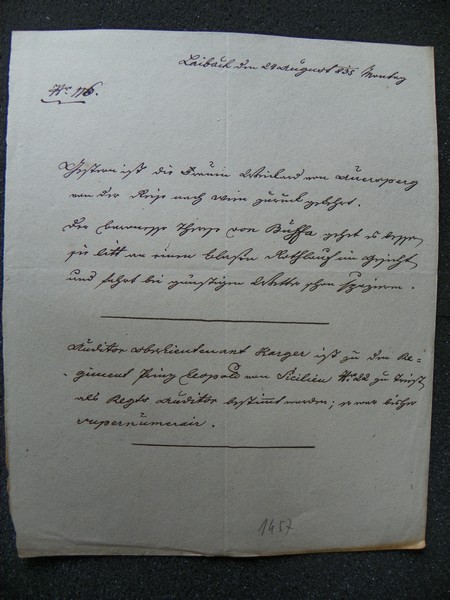 Laibach den 29 August 835 Montag
No. 116.
Gestern ist die Gräfin Weickard von Auersperg
von der Reise nach Wien zurück gekehrt.
Der Baronesse Therese von Buffa gehet es besser,
sie litt an einem blasen Rothlauf im Gesicht
und fahrt bei günstigem Wetter schon spazieren.
Auditor Oberlieutenant Karger ist zu dem Re-
giment Prinz Leopold von Sicilien No. 22 zu Triest
als Regts Auditor bestimmt worden; er war bisher
supernumerair.
1457